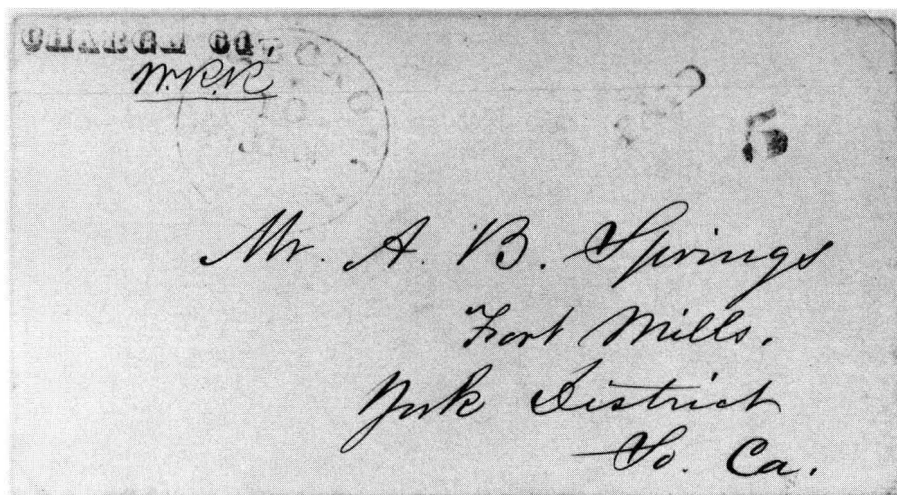 CHARGE 64
W.R.R.
5
Mr. A. B. Springs
Fort Mills.
York District
So. Ca.